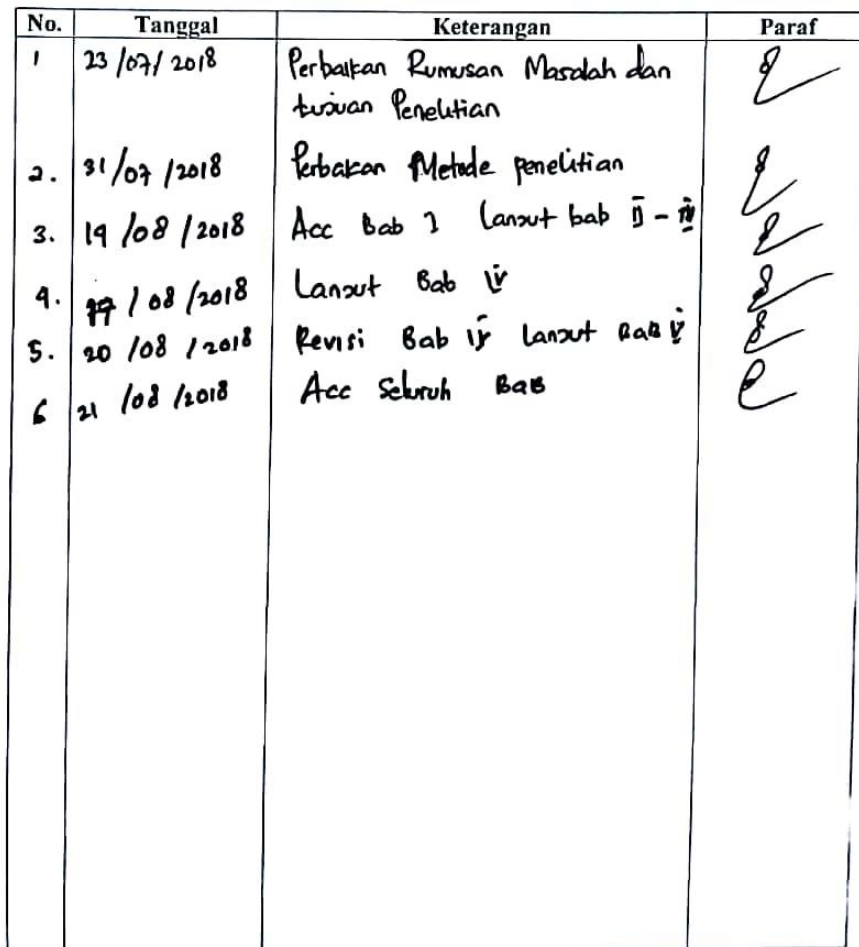 No. Tanggal Keterangan Paraf
1 23/07/2018 Perbaikan Rumusan Masalah dan
tujuan Penelitian
2. 31/07/2018 Perbaikan Metode penelitian
3. 19/08/2018 Acc Bab I Lanjut bab II - IV
4. /08/2018 Lanjut Bab IV
5. 20/08/2018 Revisi Bab IV Lanjut BAB V
6 21/08/2018 Acc Seluruh BAB